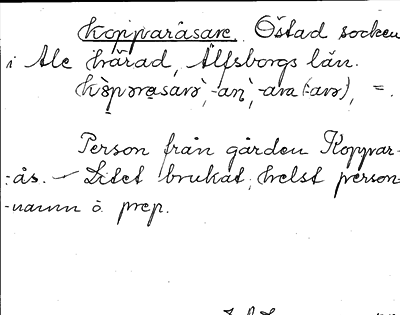 Kopparåsare. Östad socken
i Ale härad, Älfsborgs län.
Person från gården Koppar-
-ås. – Litet brukat, helst person-
-namn o. prep.